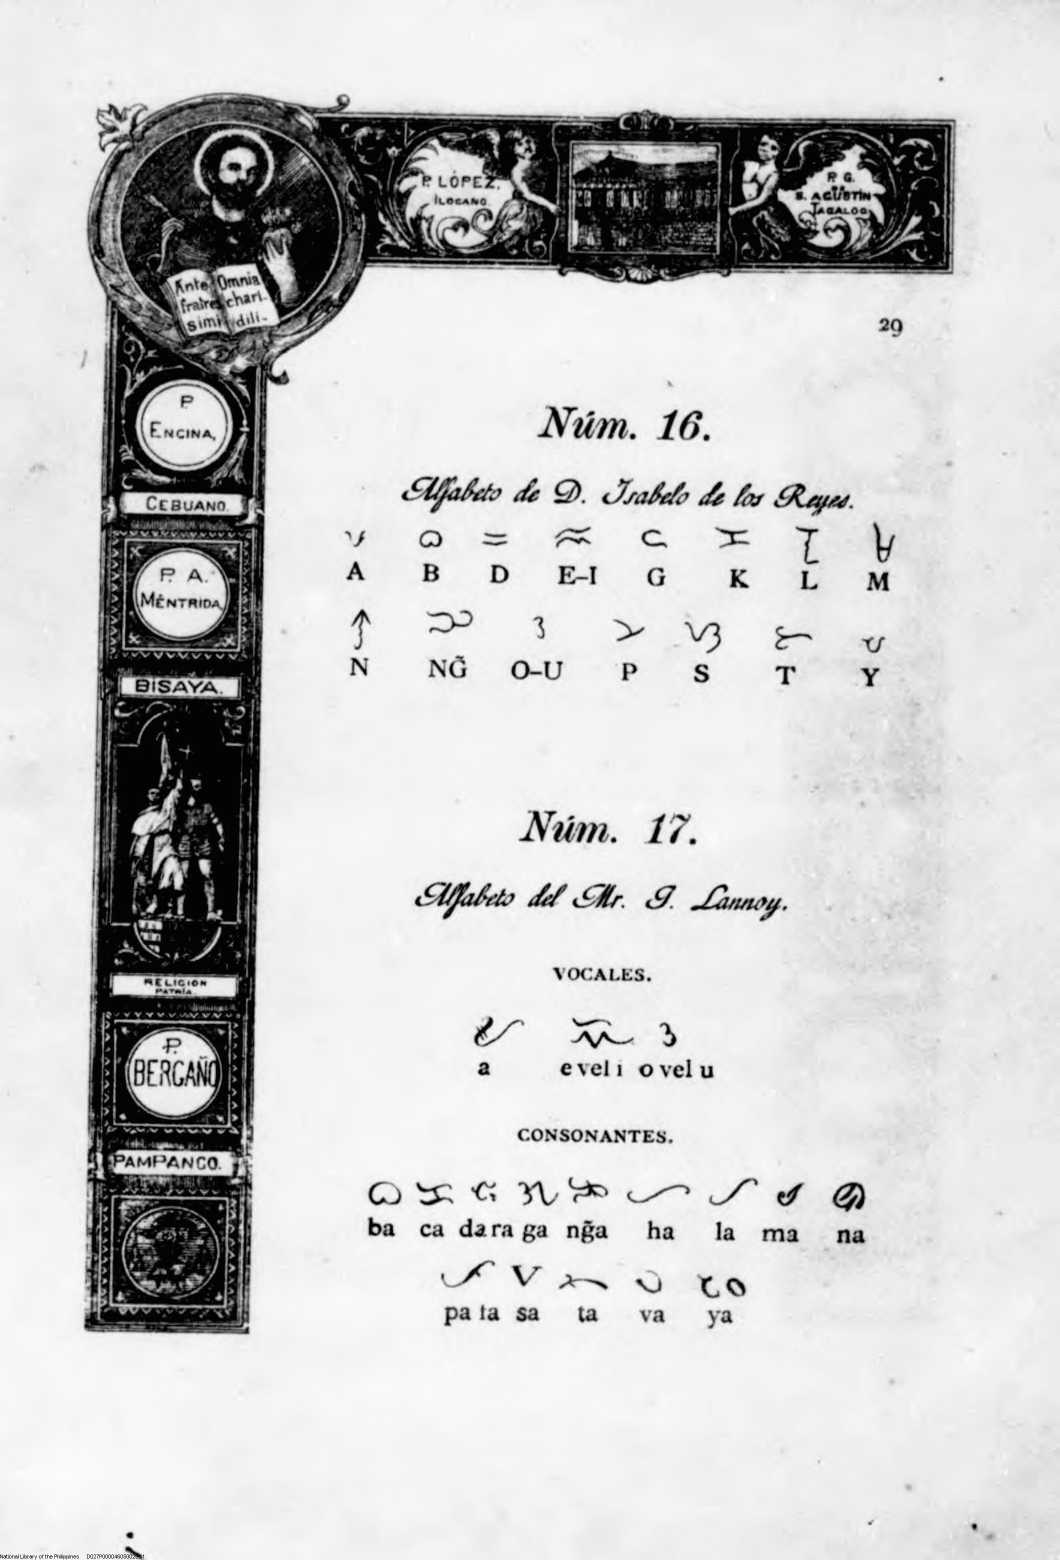 P. LÓPEZ,
ILOCANO.
P. G.
DE
S. AGUSTÍN
TAGALOG
Ante Omnia
fratres chari-
simi dili-
29
P.
ENCINA,
CEBUANO.
P. A.
MÉNTRIDA,
BISAYA.
RELIGION
PATRÍA
P.
BERGAÑO
PAMPANGO.
Núm. 16.
Alfabeto de D. Isabelo de los Reyes.
A B D E-I G K L M
N NG̃ O-U P S T Y
Núm. 17.
Alfabeto del Mr. J. Lannoy.
VOCALES.
a e vel i o vel u
CONSONANTES.
ba ca da ra ga ng̃a ha la ma na
pa fa sa ta va ya
National Library of the Philippines